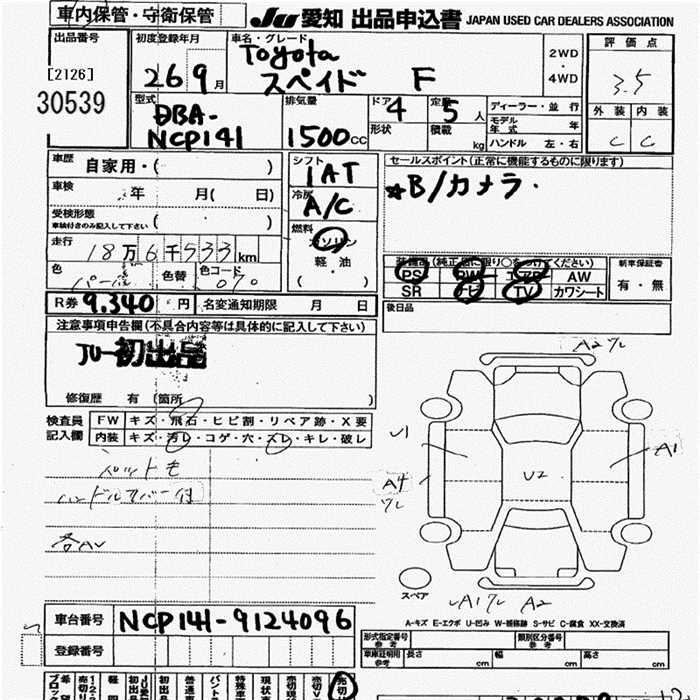 車内保管・守衛保管
JU 愛知 出品申込書 JAPAN USED CAR DEALERS ASSOCIATION
出品番号
[2126]
30539
初度登録年月
26 9 月
車名・グレード
Toyota
スペイド F
2WD
・
4WD
評価点
3.5
外装 内装
C C
型式
DBA-
NCP141
排気量
1500cc
ドア 4
形状
定員 5人
積載 kg
ディーラー・並行
モデル年式 年
ハンドル 左・右
車歴
自家用・( )
車検
年 月( 日)
受検形態
車検付きのみ記入して下さい ( )
走行
18万6千533km
色 パール
色替
色コード 070
R券 9,340円
名変通知期限 月 日
シフト
1AT
冷房
A/C
燃料
ガソリン
軽・油
( )
セールスポイント(正常に機能するものに限ります)
★B/カメラ.
装備品(純正品に限り○をつけてください)
PS PW エアB AW
SR ナビ TV カワシート
新車保証書
有・無
後日品
注意事項申告欄(不具合内容等は具体的に記入して下さい)
JU-初出品
修復歴 有(箇所 )
検査員
記入欄
FW キズ・飛石・ヒビ割・リペア跡・X要
内装 キズ・汚レ・コゲ・穴・スレ・キレ・破レ
ペットモ
ハンドルカバー付
各AU
A2ワレ
U1
A1
A4
ワレ
U2
スペア
A1ワレ A2
A-キズ E-エクボ U-凹み W-補修跡 S-サビ C-腐食 XX-交換済
車台番号 NCP141-9124096
登録番号
形式指定番号
参考
類別区分番号
参考
車庫証明用
参考
長さ cm
幅 cm
高さ cm